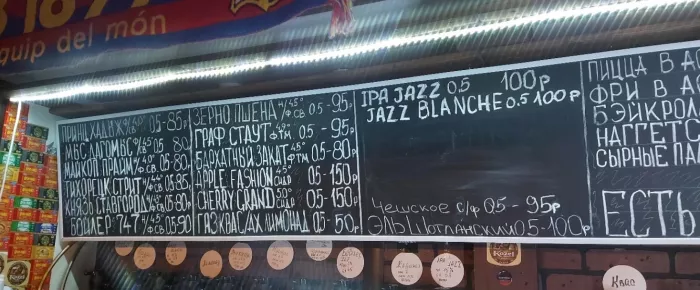 1899
equip del món
ПРИНЦ ХАДИЖ 0.5-85р
МБС ЛАГО МБС 0.5 80
МАЙКОП ПРАЙМ 0.5 80
ТИХОРЕЦК СТРИТ 0.5 85
КНЯЗЬ СТАВГОРОД 0.5 80
БОИЛЕР 747 Н/45° СВ. 0.5 90
ЗЕРНО ПШЕНА Н/45° СВ 0.5 - 95р
ГРАФ СТАУТ ТМ 0.5 - 95р
БАРХАТНЫЙ ЗАКАТ ТМ 0.5-80р
APPLE FASHION СИДР 0.5-150р
CHERRY GRAND СИДР 0.5-150р
ГАЗ КВАС/АХ ЛИМОНАД 0.5-50р
IPA JAZZ 0.5 100р
JAZZ BLANCHE 0.5 100р
Чешское с/ф 0.5 - 95р
ЭЛЬ Шотланский 0.5-100р
ПИЦЦА В АС
ФРИ В АС
БЭЙКРОЛ
НАГГЕТС
СЫРНЫЕ ПАЛ
ЕСТЬ
IPA
Kozel
Квас